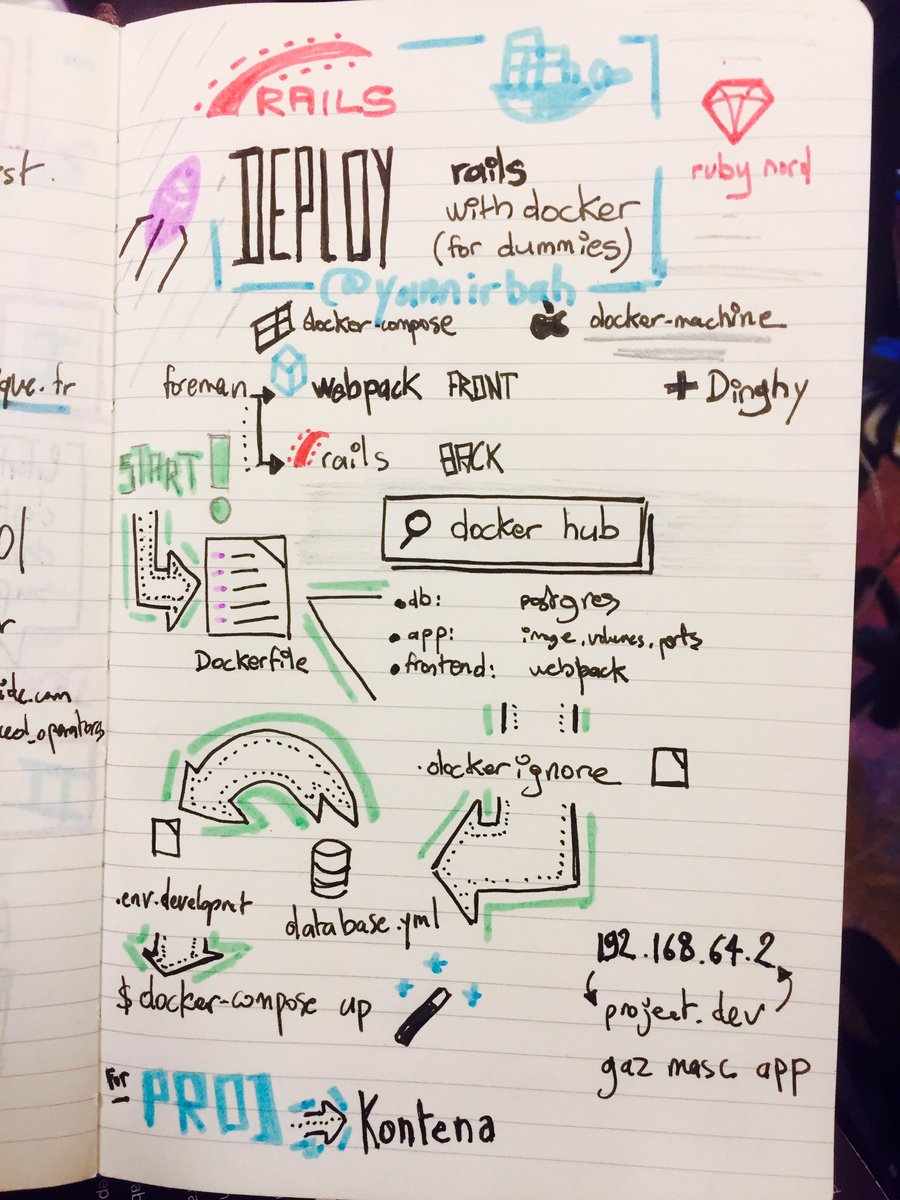 RAILS
DEPLOY
rails
with docker
(for dummies)
ruby nord
@yannirbah
docker-compose
docker-machine
foreman
webpack FRONT
+ Dinghy
rails BACK
START!
docker hub
Dockerfile
• db: postgres
• app: image, volumes, ports
• frontend: webpack
.dockerignore
.env.developmet
database.yml
$ docker-compose up
192.168.64.2
project.dev
gaz masc app
For
PROD
Kontena
est.
ique.fr
ol
r
ide.com
ced_operators